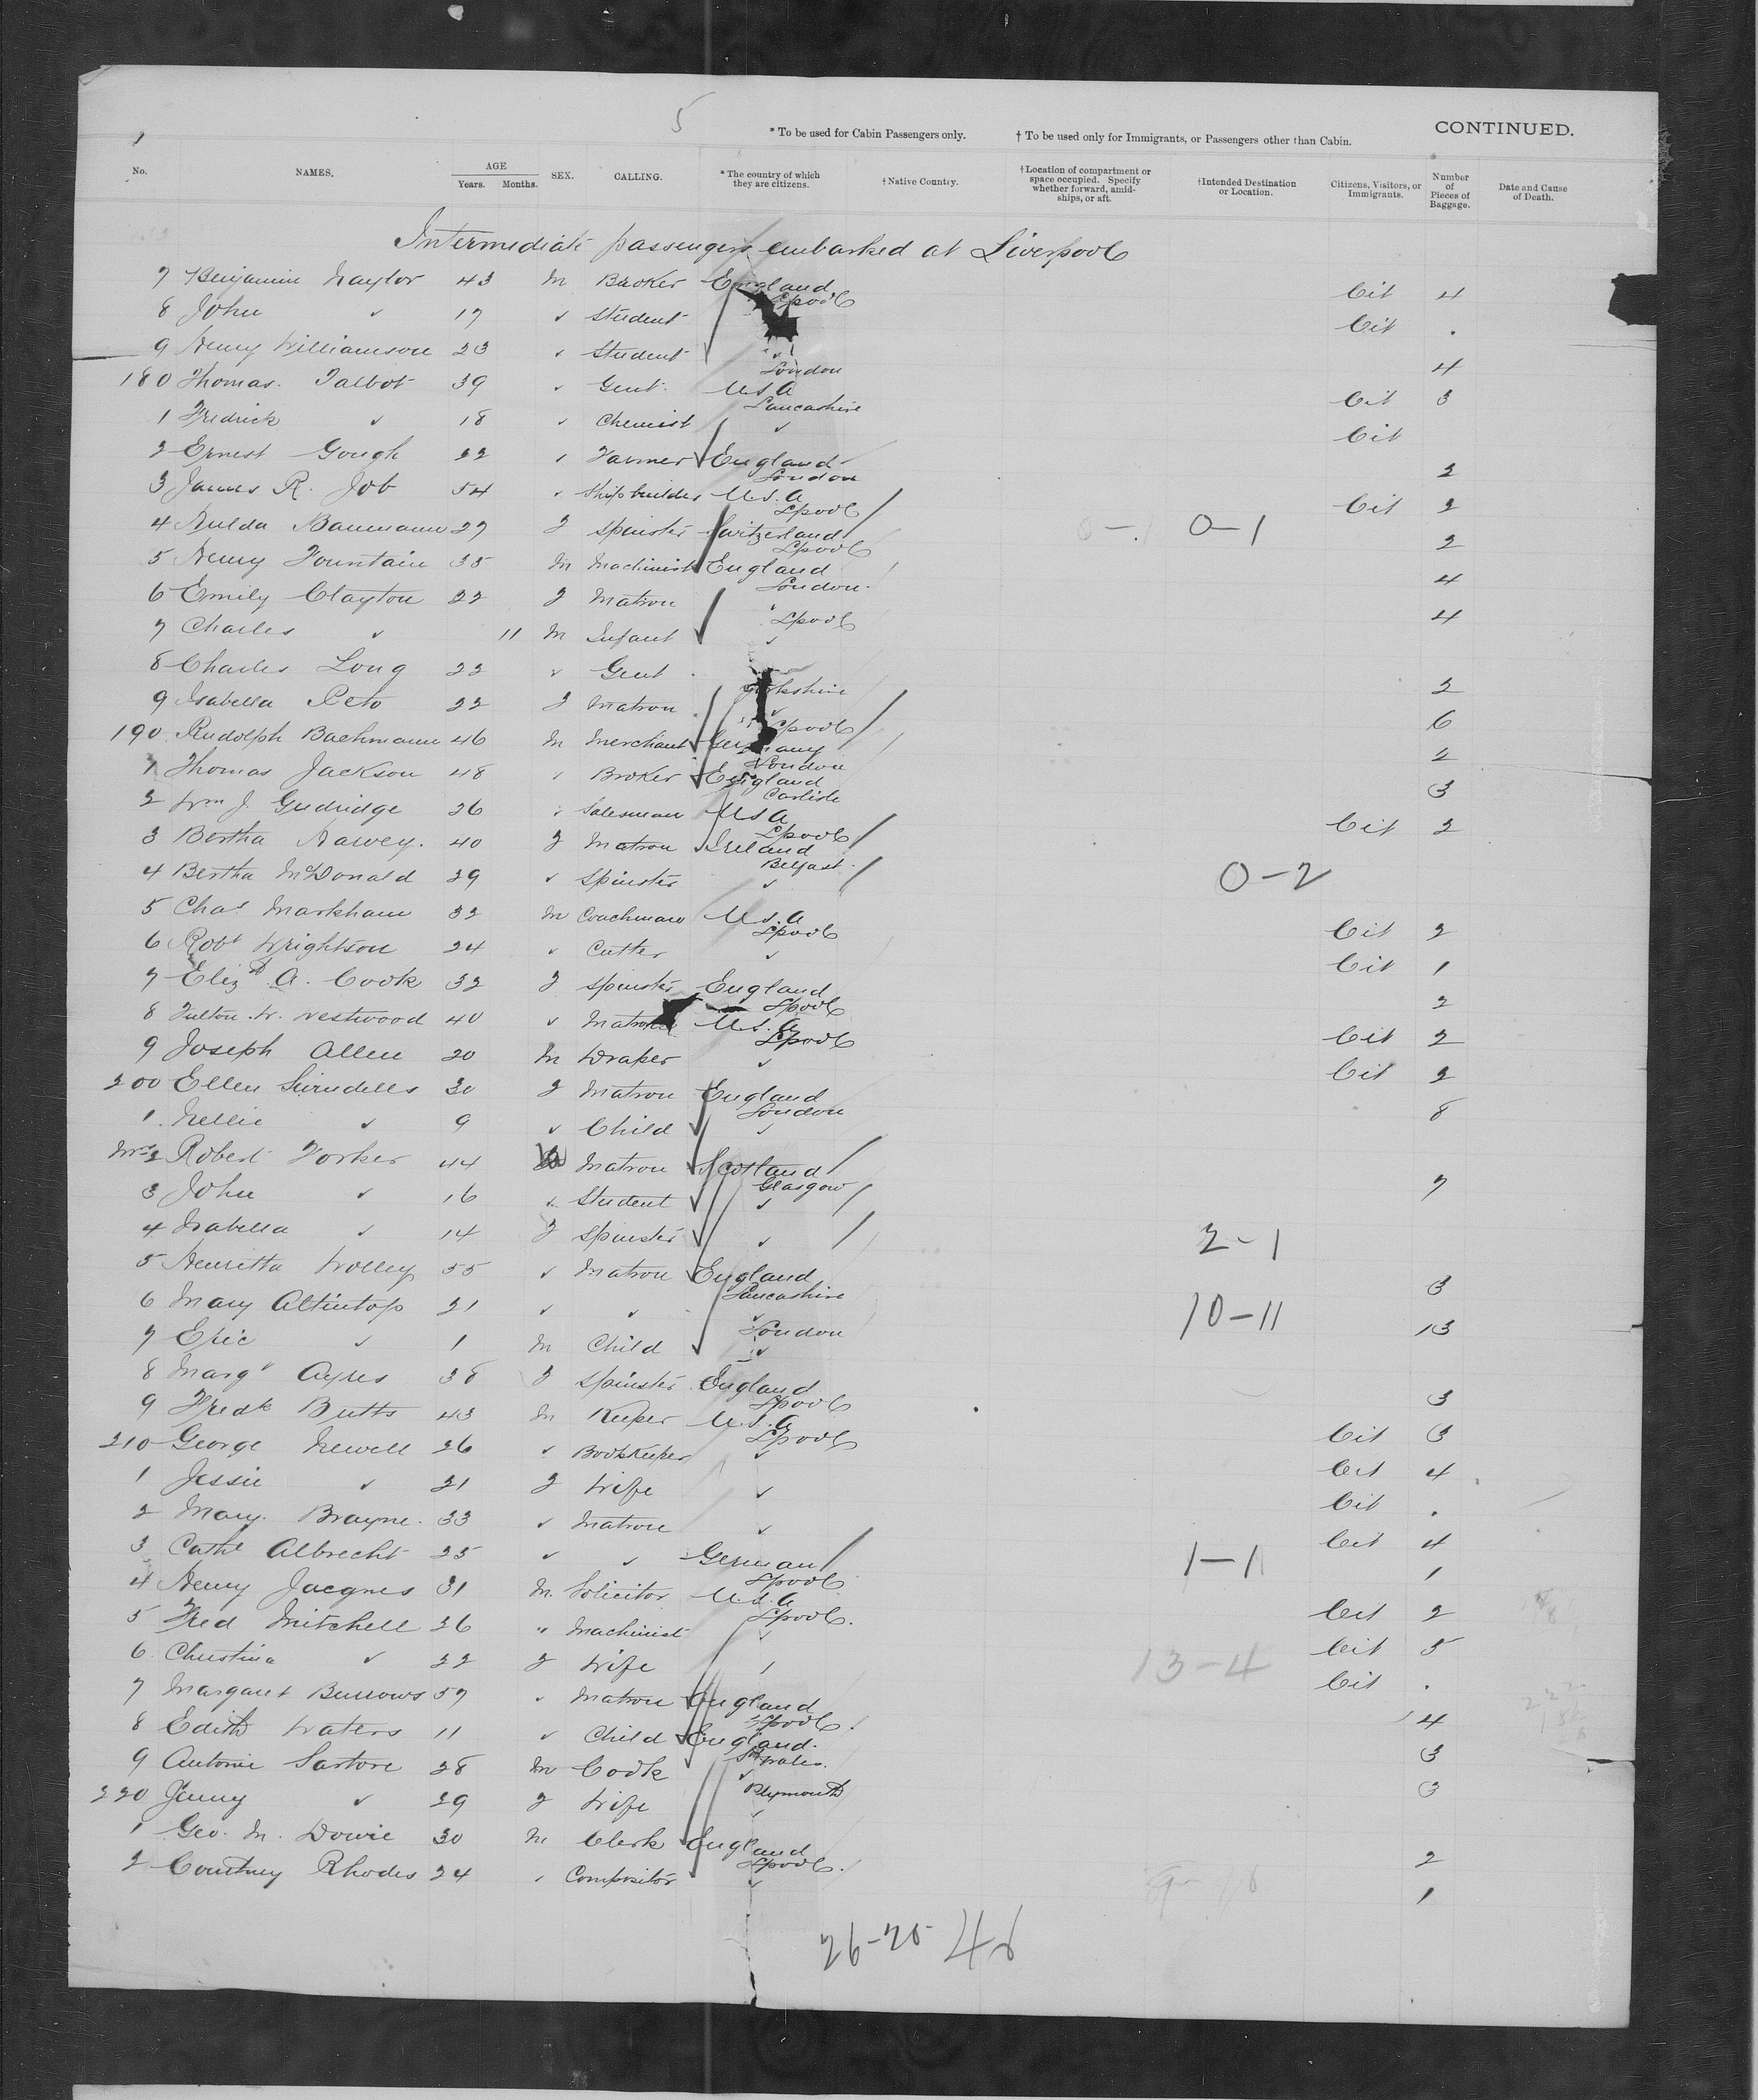 5
* To be used for Cabin Passengers only. † To be used only for Immigrants, or Passengers other than Cabin. CONTINUED.
No. NAMES. AGE Years. Months. SEX. CALLING. * The country of which they are citizens. † Native Country. † Location of compartment or space occupied. Specify whether forward, amidships, or aft. † Intended Destination or Location. Citizens, Visitors, or Immigrants. Number of Pieces of Baggage. Date and Cause of Death.
Intermediate passengers embarked at Liverpool
7 Benjamin Naylor 43 M Broker England L'pool Cit 4
8 John " 17 " Student Cit .
9 Henry Williamson 23 " Student " London 4
180 Thomas Talbot 39 " Gent. U S A Lancashire Cit 3
1 Fredrick " 18 " Chemist " Cit
2 Ernest Gough 22 " Farmer England London 2
3 James R. Job 54 " Shipbuilder U.S.A L'pool Cit 2
4 Hulda Baumann 27 F Spinster Switzerland L'pool 0-1 2
5 Henry Fountain 35 M Machinist England London 4
6 Emily Clayton 22 F Matron " L'pool 4
7 Charles " 11 M Infant "
8 Charles Long 22 " Gent Yorkshire 2
9 Isabella Peto 22 F Matron " L'pool 6
190 Rudolph Bachmann 46 M Merchant Germany London 2
1 Thomas Jackson 48 " Broker England Carlisle 3
2 Wm J. Gudridge 26 " Salesman U S A L'pool Cit 2
3 Bertha Harvey. 40 F Matron Ireland Belfast
4 Bertha McDonald 29 " Spinster " 0-2
5 Chas Markham 32 M Coachman U.S.A L'pool Cit 2
6 Robt Wrightson 24 " Cutter " Cit 1
7 Elizth A. Cook 32 F Spinster England L'pool 2
8 Fulton W. Westwood 40 " Matron U.S.A L'pool Cit 2
9 Joseph Allen 20 M Draper " Cit 2
200 Ellen Swindells 30 F Matron England London 8
1 Nellie " 9 " Child "
Mrs 2 Robert Forker 44 Matron Scotland Glasgow 7
3 John " 16 " Student "
4 Isabella " 14 F Spinster " 2-1
5 Henrietta Wolley 55 " Matron England Lancashire 3
6 Mary Altintop 21 " " " London 10-11 13
7 Eric " 1 M Child "
8 Margt Ayres 38 F Spinster England L'pool 3
9 Fredk Butts 43 M Keeper U.S.A L'pool Cit 3
210 George Newell 26 " Bookkeeper " Cit 4
1 Jessie " 21 F Wife " Cit .
2 Mary Brayne. 33 " Matron " Cit 4
3 Cathe Albrecht 25 " " German L'pool 1-1 1
4 Henry Jacques 31 M. Solicitor U.S.A L'pool. Cit 2
5 Fred Mitchell 26 " Machinist " Cit 5
6 Christina " 22 F Wife " 13-4 Cit .
7 Margaret Burrows 57 " Matron England L'pool 4
8 Edith Waters 11 " Child England. Sth Wales. 3
9 Antonie Sartori 28 M Cook " Plymouth 3
220 Jenny " 29 F Wife "
1 Geo. M. Dowie 30 M Clerk England L'pool. 2
2 Courtney Rhodes 24 " Compositor " 1
26-20 46